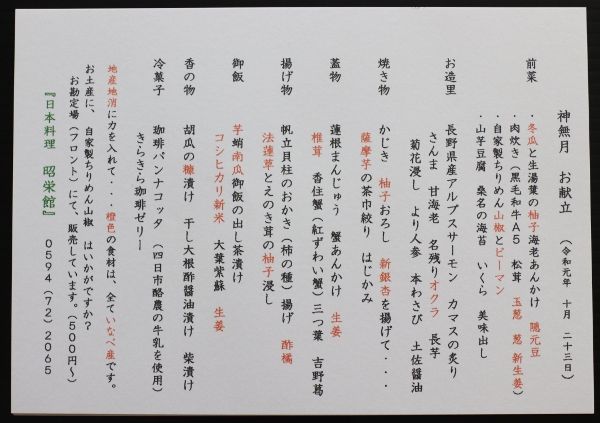 神無月 お献立 (令和元年 十月 二十三日)
前菜 ・冬瓜と生湯葉の柚子海老あんかけ 隠元豆
・肉炊き(黒毛和牛A5 松茸 玉葱 葱 新生姜)
・自家製ちりめん山椒とピーマン
・山芋豆腐 桑名の海苔 いくら 美味出し
お造里 長野県産アルプスサーモン カマスの炙り
さんま 甘海老 名残りオクラ 長芋
菊花浸し より人参 本わさび 土佐醤油
焼き物 かじき 柚子おろし 新銀杏を揚げて・・・
薩摩芋の茶巾絞り はじかみ
蓋物 蓮根まんじゅう 蟹あんかけ 生姜
椎茸 香住蟹(紅ずわい蟹) 三つ葉 吉野葛
揚げ物 帆立貝柱のおかき(柿の種)揚げ 酢橘
法蓮草とえのき茸の柚子浸し
御飯 芋蛸南瓜御飯の出し茶漬け
コシヒカリ新米 大葉紫蘇 生姜
香の物 胡瓜の糠漬け 干し大根酢醤油漬け 柴漬け
冷菓子 珈琲パンナコッタ (四日市酪農の牛乳を使用)
きらきら珈琲ゼリー
地産地消に力を入れて・・・橙色の食材は、全ていなべ産です。
お土産に、自家製ちりめん山椒 はいかがですか?
お勘定場(フロント)にて、販売しています。(500円~)
『日本料理 昭栄館』 0594(72)2065